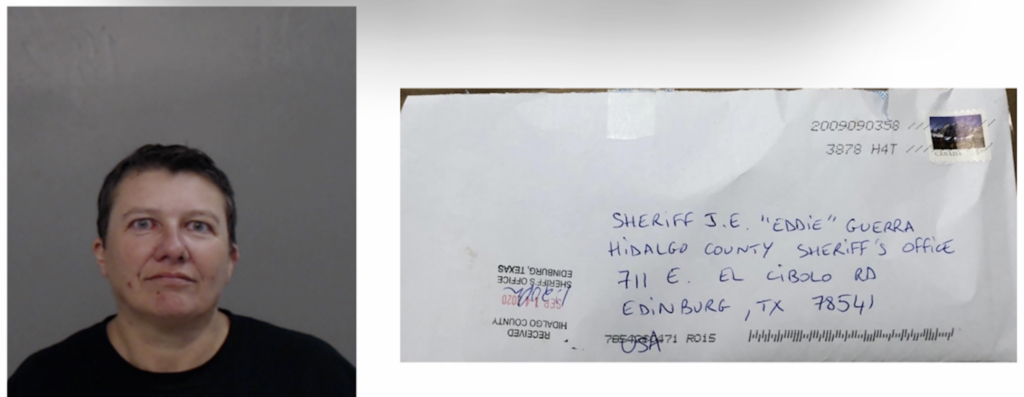 2009090358
3878 H4T
SHERIFF J.E. "EDDIE" GUERRA
HIDALGO COUNTY SHERIFF'S OFFICE
711 E. EL CIBOLO RD
EDINBURG, TX 78541
USA
R015
RECEIVED
HIDALGO COUNTY
SEP 2020
SHERIFF'S OFFICE
EDINBURG, TEXAS